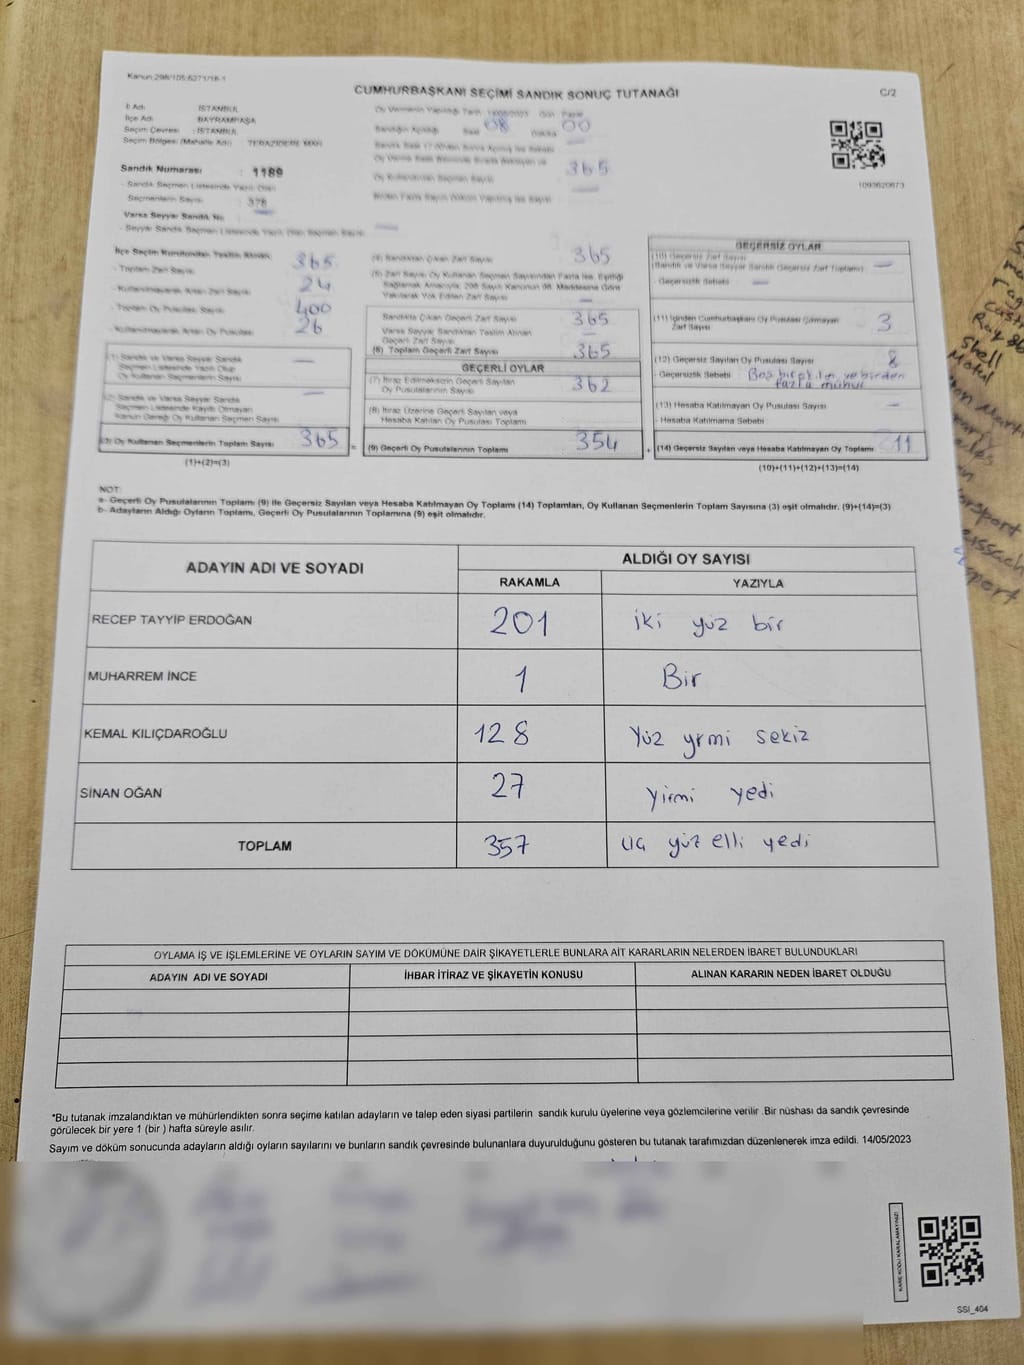 Kanun:298/105-6271/18-1
CUMHURBAŞKANI SEÇİMİ SANDIK SONUÇ TUTANAĞI
C/2
İl Adı : İSTANBUL
İlçe Adı : BAYRAMPAŞA
Seçim Çevresi : İSTANBUL
Seçim Bölgesi /Mahalle Adı : TERAZİDERE MAH.
Sandık Numarası : 1189
- Sandık Seçmen Listesinde Yazılı Olan
Seçmenlerin Sayısı : 378
Varsa Seyyar Sandık No
- Seyyar Sandık Seçmen Listesinde Yazılı Olan Seçmen Sayısı —
Oy Vermenin Yapıldığı Tarih 14/05/2023 Gün Pazar
Sandığın Açıldığı Saat 08 Dakika 00
365
1093620673
İlçe Seçim Kurulundan Teslim Alınan
- Toplam Zarf Sayısı 365
- Kullanılmayarak Artan Zarf Sayısı 24
- Toplam Oy Pusulası Sayısı 400
- Kullanılmayarak Artan Oy Pusulası 26
(1) Sandık ve Varsa Seyyar Sandık
Seçmen Listesinde Yazılı Olup
Oy Kullanan Seçmenlerin Sayısı —
(2) Sandık ve Varsa Seyyar Sandık
Seçmen Listesinde Kayıtlı Olmayan
Kanun Gereği Oy Kullanan Seçmen Sayısı —
(3) Oy Kullanan Seçmenlerin Toplam Sayısı 365
(1)+(2)=(3)
(4) Sandıktan Çıkan Zarf Sayısı 365
(5) Zarf Sayısı Oy Kullanan Seçmen Sayısından Fazla İse, Eşitliği
Sağlamak Amacıyla, 298 Sayılı Kanunun 98. Maddesine Göre
Yakılarak Yok Edilen Zarf Sayısı —
Sandıkta Çıkan Geçerli Zarf Sayısı 365
Varsa Seyyar Sandıktan Teslim Alınan
Geçerli Zarf Sayısı —
(6) Toplam Geçerli Zarf Sayısı 365
GEÇERLİ OYLAR
(7) İtiraz Edilmeksizin Geçerli Sayılan
Oy Pusulasının Sayısı 362
(8) İtiraz Üzerine Geçerli Sayılan veya
Hesaba Katılan Oy Pusulası Toplamı
(9) Geçerli Oy Pusulalarının Toplamı 354
GEÇERSİZ OYLAR
(10) Geçersiz Zarf Sayısı
(Sandık ve Varsa Seyyar Sandık Geçersiz Zarf Toplamı) —
- Geçersizlik Sebebi —
(11) İçinden Cumhurbaşkanı Oy Pusulası Çıkmayan
Zarf Sayısı 3
(12) Geçersiz Sayılan Oy Pusulası Sayısı 8
- Geçersizlik Sebebi Boş bırakılan ve birden
fazla mühür
(13) Hesaba Katılmayan Oy Pusulası Sayısı —
- Hesaba Katılmama Sebebi
(14) Geçersiz Sayılan veya Hesaba Katılmayan Oy Toplamı 11
(10)+(11)+(12)+(13)=(14)
NOT:
a- Geçerli Oy Pusulalarının Toplamı (9) ile Geçersiz Sayılan veya Hesaba Katılmayan Oy Toplamı (14) Toplamları, Oy Kullanan Seçmenlerin Toplam Sayısına (3) eşit olmalıdır. (9)+(14)=(3)
b- Adayların Aldığı Oyların Toplamı, Geçerli Oy Pusulalarının Toplamına (9) eşit olmalıdır.
ADAYIN ADI VE SOYADI
ALDIĞI OY SAYISI
RAKAMLA YAZIYLA
RECEP TAYYİP ERDOĞAN 201 iki yüz bir
MUHARREM İNCE 1 Bir
KEMAL KILIÇDAROĞLU 128 Yüz yrmi sekiz
SİNAN OĞAN 27 Yirmi yedi
TOPLAM 357 üç yüz elli yedi
OYLAMA İŞ VE İŞLEMLERİNE VE OYLARIN SAYIM VE DÖKÜMÜNE DAİR ŞİKAYETLERLE BUNLARA AİT KARARLARIN NELERDEN İBARET BULUNDUKLARI
ADAYIN ADI VE SOYADI İHBAR İTİRAZ VE ŞİKAYETİN KONUSU ALINAN KARARIN NEDEN İBARET OLDUĞU
*Bu tutanak imzalandıktan ve mühürlendikten sonra seçime katılan adayların ve talep eden siyasi partilerin sandık kurulu üyelerine veya gözlemcilerine verilir .Bir nüshası da sandık çevresinde
görülecek bir yere 1 (bir ) hafta süreyle asılır.
Sayım ve döküm sonucunda adayların aldığı oyların sayılarını ve bunların sandık çevresinde bulunanlara duyurulduğunu gösteren bu tutanak tarafımızdan düzenlenerek imza edildi. 14/05/2023
KARE KODU KARALAMAYINIZ!
SSI_404
Shell